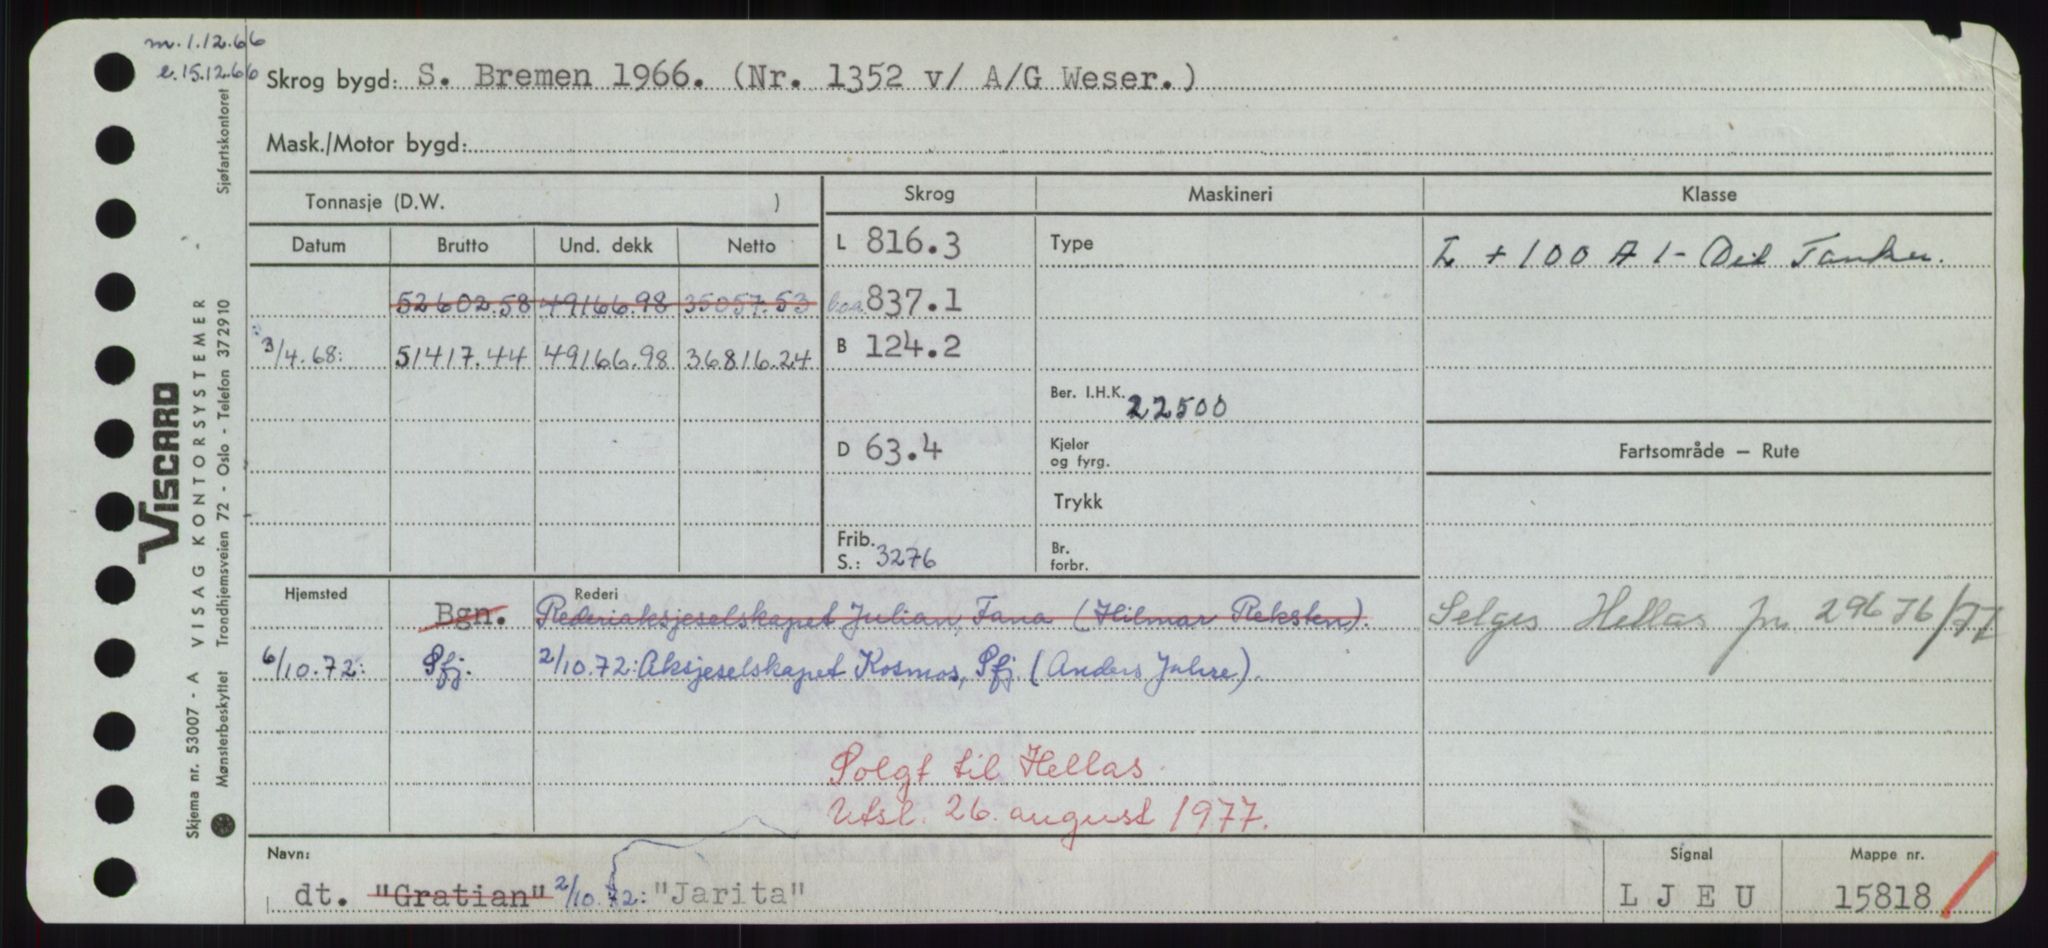 m. 1.12.66
e. 15.12.66
Skrog bygd: S. Bremen 1966. (Nr. 1352 v/ A/G Weser.)
Mask./Motor bygd:
Tonnasje (D.W. )
Skrog
Maskineri
Klasse
Datum Brutto Und. dekk Netto
L 816.3
Type
+ 100 A 1 - Oil Tanker.
52602.58 49166.98 35057.53
boa 837.1
3/4.68: 51417.44 49166.98 36816.24
B 124.2
Ber. I.H.K. 22500
D 63.4
Kjeler og fyrg.
Fartsområde — Rute
Trykk
Frib. S.: 3276
Br. forbr.
Hjemsted
Rederi
Bgn. Rederiaksjeselskapet Julian, Fana (Hilmar Reksten).
Selges Hellas Jn. 29676/77
6/10.72: Sfj. 2/10.72: Aksjeselskapet Kosmos, Sfj. (Anders Jahre).
Solgt til Hellas.
Utsl. 26. august 1977.
Navn:
Signal
Mappe nr.
dt. "Gratian" 2/10.72: "Jarita"
LJEU
15818
VISCARD
Skjema nr. 53007 - A VISAG KONTORSYSTEMER
Mønsterbeskyttet Trondhjemsveien 72 - Oslo - Telefon 372910
Sjøfartskontoret